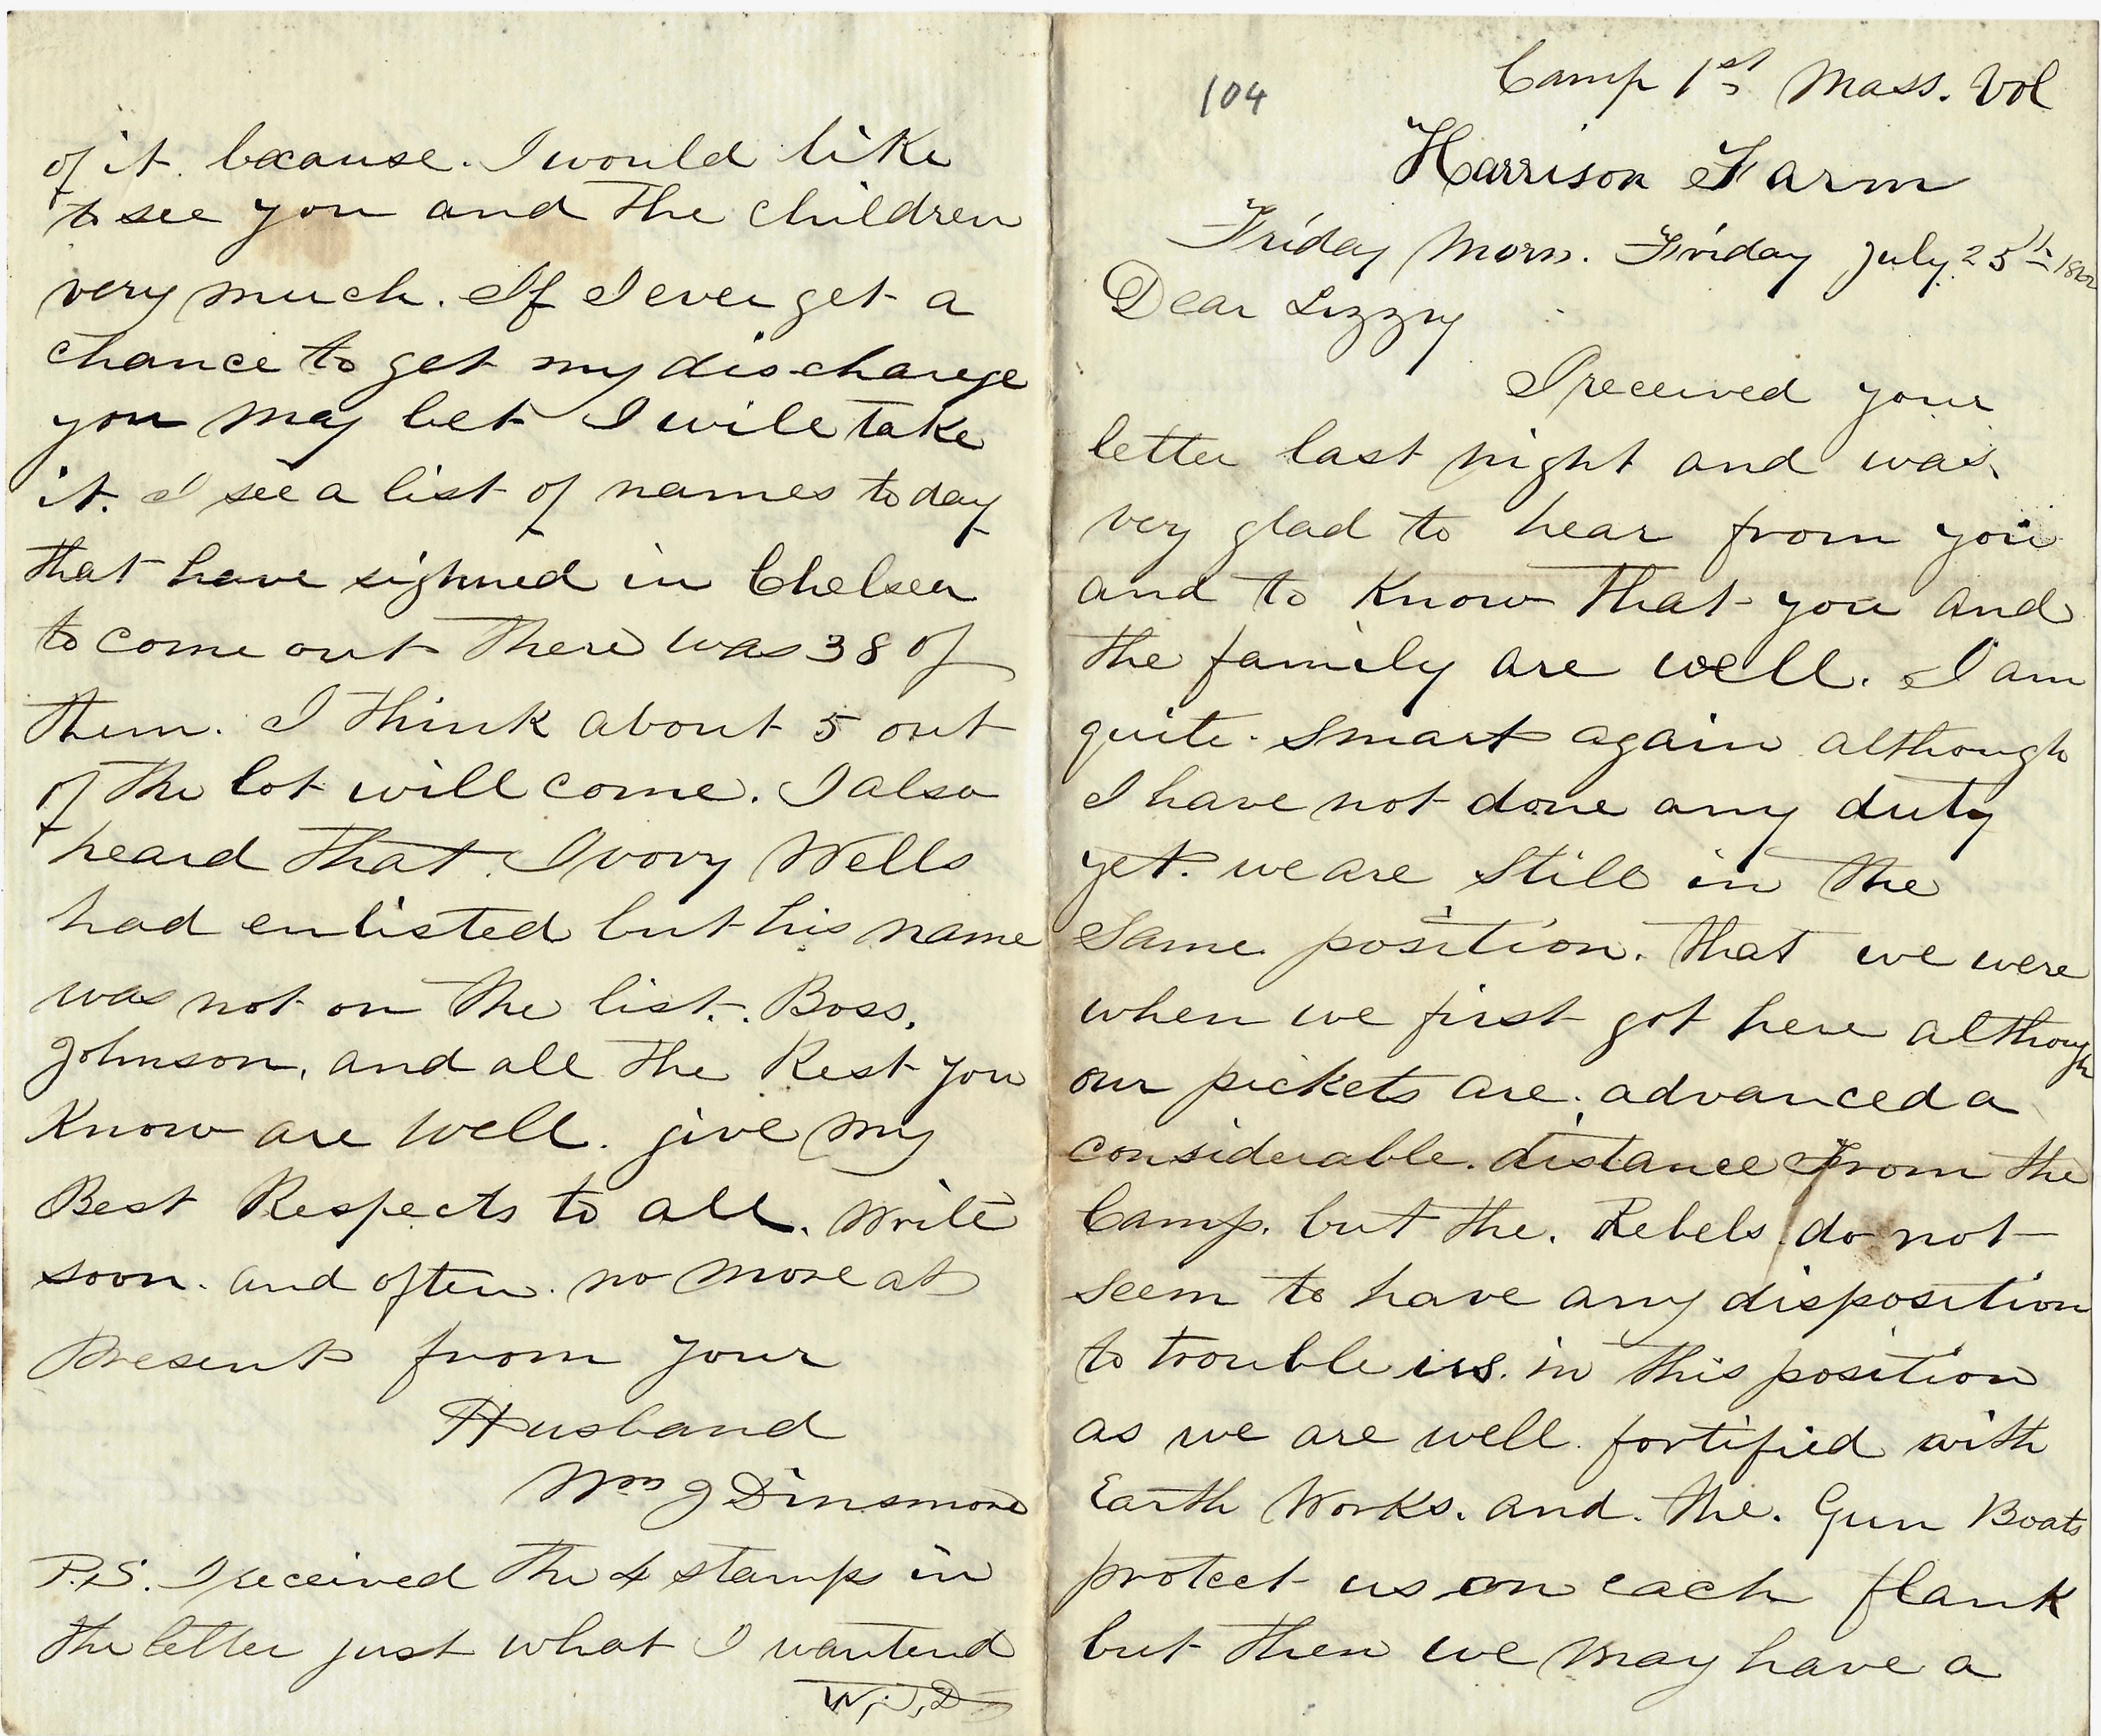 104
Camp 1st Mass. Vol
Harrison Farm
Friday Morn. Friday July 25th 1862
Dear Lizzy
I received your
letter last night and was
very glad to hear from you
and to Know that you and
the family are well. I am
quite smart again although
I have not done any duty
yet. we are still in the
Same position. that we were
when we first got here although
our pickets are advanced a
considerable. distance From the
Camp. but the. Rebels do not
seem to have any disposition
to trouble us. in this position
as we are well. fortified with
Earth Works. and. the. Gun Boats
protect us on each flank
but then we may have a
of it because. I would like
to see you and the children
very much. If I ever get a
chance to get my discharge
you may bet I will take
it. I see a list of names to day
that have sighned in Chelsea
to come out there was 38 of
them. I think about 5 out
of the lot will come. I also
heard that Ivory Wells
had enlisted but his name
was not on the list. Boss.
Johnson, and all the Rest you
Know are well. give my
Best Respects to all. Write
soon. and often. no more at
Present from your
Husband
Wm J Dinsmore
P.S. I received the 4 stamps in
the letter just what I wantend
W.J.D